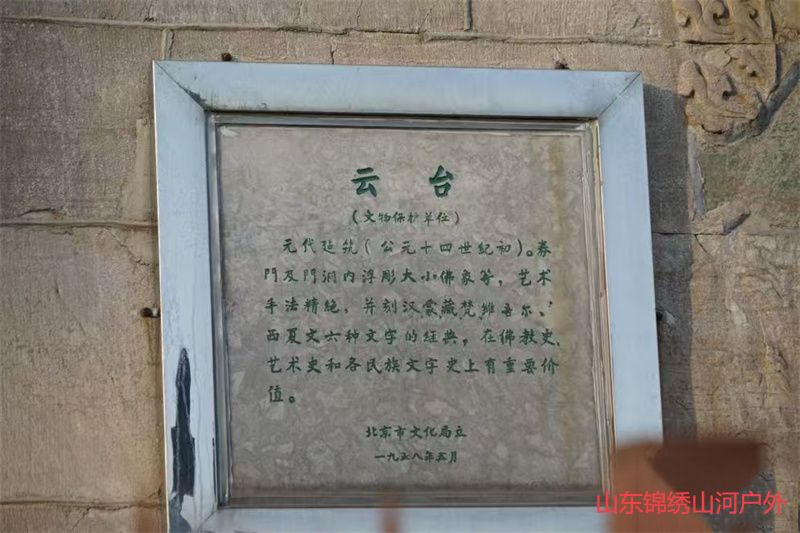 云台
(文物保护单位)
元代建筑(公元十四世纪初)。券
門及門洞内浮彫大小佛象等，艺术
手法精絶，并刻汉、蒙、藏、梵、維吾尔、
西夏文六种文字的経典，在佛教史、
艺术史和各民族文字史上有重要价
值。
北京市文化局立
一九五八年五月
山东锦绣山河户外